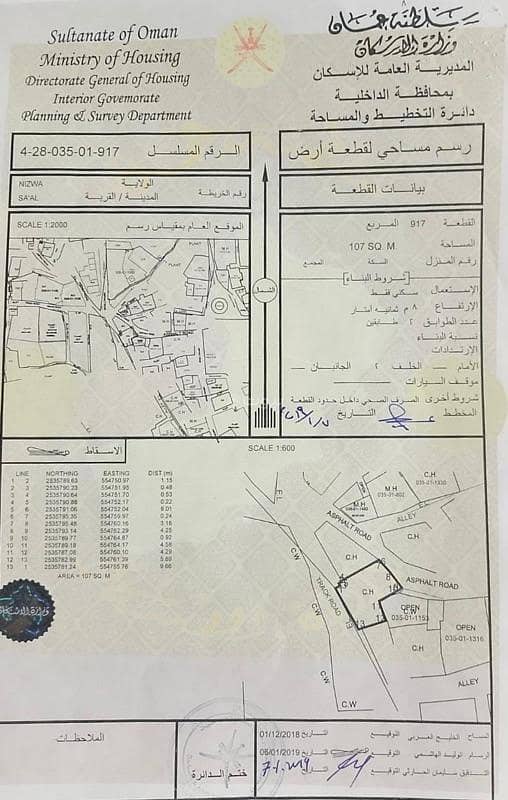 Sultanate of Oman
Ministry of Housing
Directorate General of Housing
Interior Governorate
Planning & Survey Department
سلطنة عمان
وزارة الإسكان
المديرية العامة للإسكان
بمحافظة الداخلية
دائرة التخطيط والمساحة
4-28-035-01-917 الرقم المسلسل
رسم مساحي لقطعة أرض
NIZWA الولاية
SA'AL المدينة / القرية رقم الخريطة
بيانات القطعة
SCALE 1:2000 الموقع العام بمقياس رسم
الشمال
القطعة 917 المربع
المساحة 107 SQ. M
رقم المنزل السكة المجمع
شروط البناء
الإستعمال سكني فقط
الإرتفاع ٨ م ثمانية أمتار
عدد الطوابق ٢ طابقين
نسبة البناء
الإرتدادات
الأمام — الخلف ٢ الجانبان —
موقف السيارات —
شروط أخرى الصرف الصحي داخل حدود القطعة
المخطط التاريخ
الاسقاط
SCALE 1:600
LINE NORTHING EASTING DIST (m)
1 2 2535789.63 554750.97 1.15
2 3 2535790.23 554751.95 0.48
3 4 2535790.64 554751.70 0.53
4 5 2535790.88 554752.17 0.22
5 6 2535791.06 554752.04 9.01
6 7 2535795.35 554759.97 0.24
7 8 2535795.48 554760.16 3.16
8 9 2535793.14 554762.29 4.25
9 10 2535789.77 554764.87 0.92
10 11 2535789.18 554764.17 4.58
11 12 2535787.08 554760.10 4.29
12 13 2535782.99 554761.39 5.89
13 1 2535781.24 554755.76 9.66
AREA = 107 SQ. M
M.H
035-01-802
M.H
C.H
035-01-1330
E.L
ALLEY
ASPHALT ROAD
C.H
C.H
C.W
TRACK ROAD
C.H
6
8
10
11
12
13
ASPHALT ROAD
C.W
OPEN
035-01-1153
C.H
OPEN
035-01-1316
C.W
C.W
ALLEY
C.W
الملاحظات
ختم الدائرة
المساح الخليج العربي التوقيع التاريخ 01/12/2018
الرسام الوليد الهاشمي التوقيع التاريخ 06/01/2019
التدقيق سليمان الحارثي التوقيع التاريخ